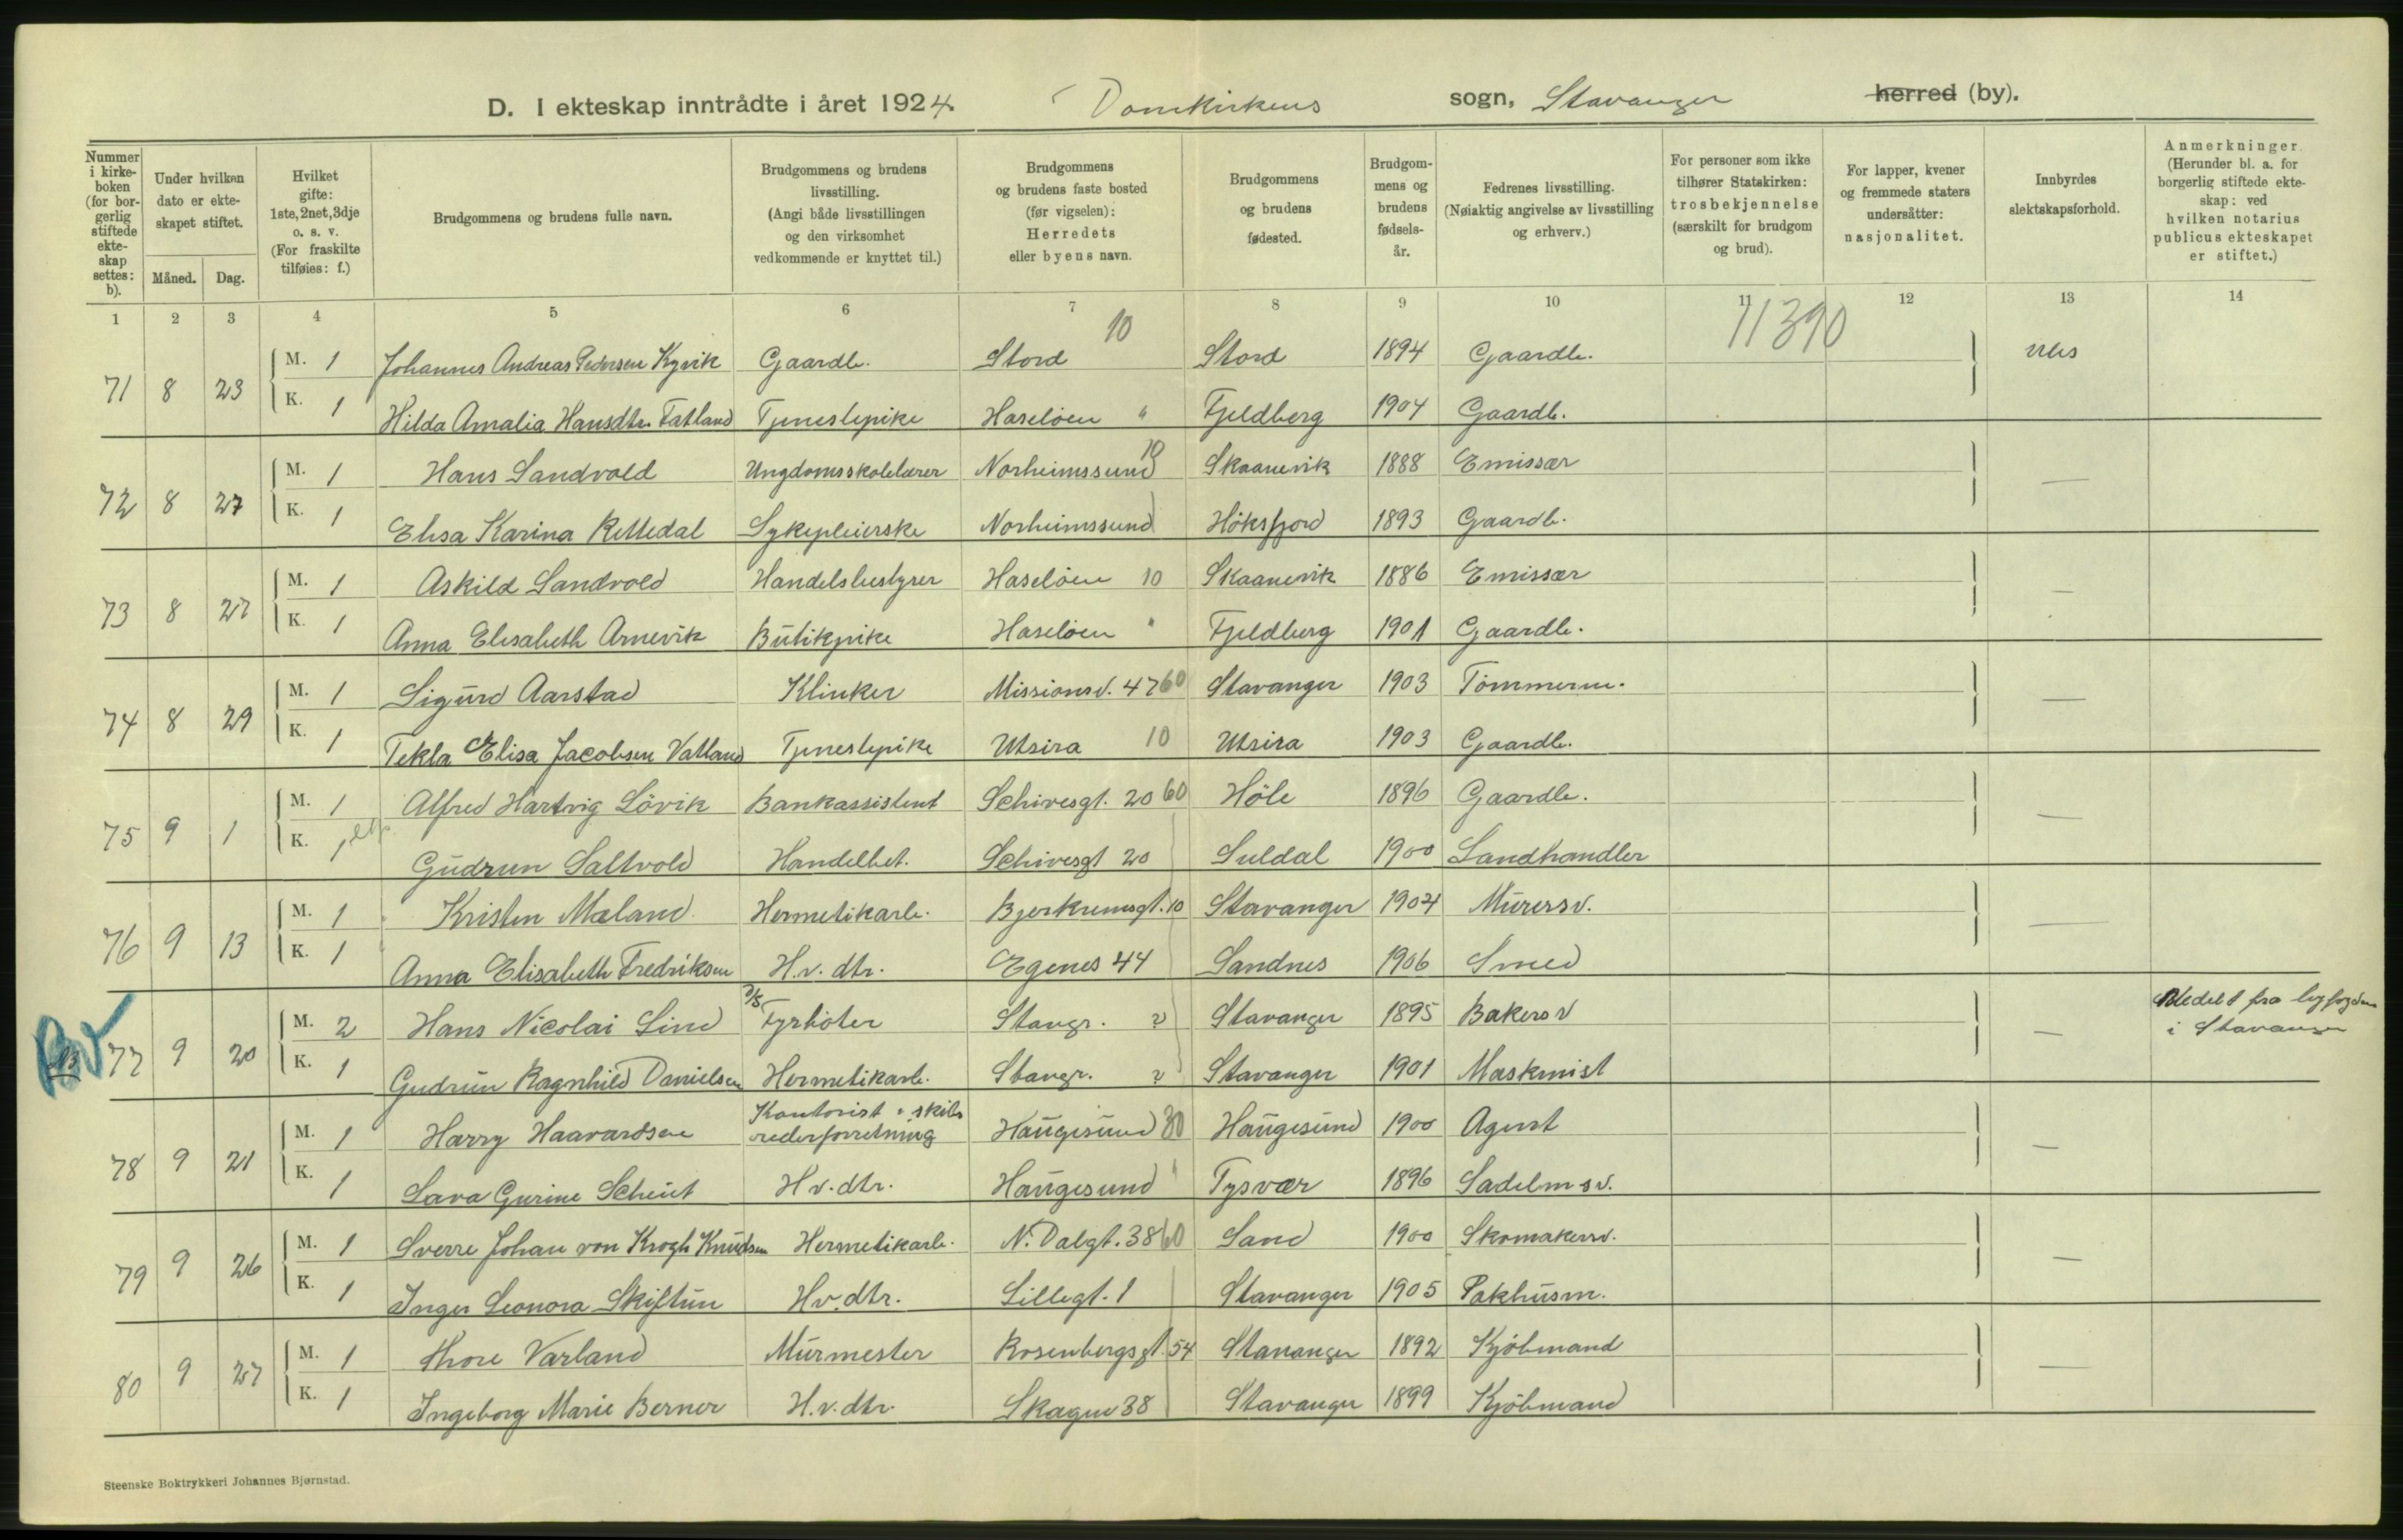 D. I ekteskap inntrådte i året 1924. Domkirkens sogn, Stavanger herred (by).
Nummer i kirkeboken (for borgerlig stiftede ekteskap settes: b).
Under hvilken dato er ekteskapet stiftet.
Måned. Dag.
Hvilket gifte: 1ste, 2net, 3dje o. s. v. (For fraskilte tilføies: f.)
Brudgommens og brudens fulle navn.
Brudgommens og brudens livsstilling. (Angi både livsstillingen og den virksomhet vedkommende er knyttet til.)
Brudgommens og brudens faste bosted (før vigselen): Herredets eller byens navn.
Brudgommens og brudens fødested.
Brudgommens og brudens fødselsår.
Fedrenes livsstilling. (Nøiaktig angivelse av livsstilling og erhverv.)
For personer som ikke tilhører Statskirken: trosbekjennelse (særskilt for brudgom og brud).
For lapper, kvener og fremmede staters undersåtter: nasjonalitet.
Innbyrdes slektskapsforhold.
Anmerkninger. (Herunder bl. a. for borgerlig stiftede ekteskap: ved hvilken notarius publicus ekteskapet er stiftet.)
1 2 3 4 5 6 7 8 9 10 11 12 13 14
10 11390
71 8 23 M. 1 Johannes Andreas Pedersen Kyvik Gaardb. Stord Stord 1894 Gaardb.
K. 1 Hilda Amalia Hansdtr. Fatland Tjenestepike Haseløen " Fjeldberg 1904 Gaardb.
72 8 27 M. 1 Hans Sandvold Ungdomsskolelærer Norheimssund 10 Skaanevik 1888 Emissær —
K. 1 Elisa Karina Rettedal Sykepleierske Norheimssund Høksfjord 1893 Gaardb.
73 8 27 M. 1 Askild Sandvold Handelsbestyrer Haseløen 10 Skaanevik 1886 Emissær —
K. 1 Anna Elisabeth Arnevik Butikpike Haseløen " Fjeldberg 1901 Gaardb.
74 8 29 M. 1 Sigurd Aarstad Klinker Missionsv. 47 60 Stavanger 1903 Tømmerm. —
K. 1 Tekla Elisa Jacobsen Vatland Tjenestepike Utsira 10 Utsira 1903 Gaardb.
75 9 1 M. 1 Alfred Hartvig Lövik Bankassistent Schivesgt. 20 60 Höle 1896 Gaardb. —
K. 1 Gudrun Saltvold Handelbet. Schivesgt 20 Suldal 1900 Landhandler
76 9 13 M. 1 Kristen Mæland Hermetikarb. Bjerkremsgt. 10 Stavanger 1904 Murersv. —
K. 1 Anna Elisabeth Fredriksen H.v. dtr. Egenes 44 Sandnes 1906 Smed
77 9 20 M. 2 Hans Nicolai Lind D/S Fyrbøter Stavgr. 2 Stavanger 1895 Bakersv — Meddelt fra byfogden
i Stavanger
K. 1 Gudrun Ragnhild Danielsen Hermetikarb. Stavgr. 2 Stavanger 1901 Maskinist
78 9 21 M. 1 Harry Haavardsen Kontorist i skibsrederforretning Haugesund 30 Haugesund 1900 Agent —
K. 1 Lava Gurine Scheie H.v. dtr. Haugesund Tysvær 1896 Sadelm sv.
79 9 26 M. 1 Sverre Johan von Krogh Knudsen Hermetikarb. N. Dalgt. 38 60 Sand 1900 Skomakersv. —
K. 1 Inger Leonora Skiftun Hv. dtr. Lillegt. 1 Stavanger 1905 Pakhusm.
80 9 27 M. 1 Thore Varland Murmester Rosenbergsgt. 54 Stavanger 1892 Kjöbmand —
K. 1 Ingeborg Marie Berner H.v. dtr. Skagen 38 Stavanger 1899 Kjöbmand
Steenske Boktrykkeri Johannes Bjørnstad.